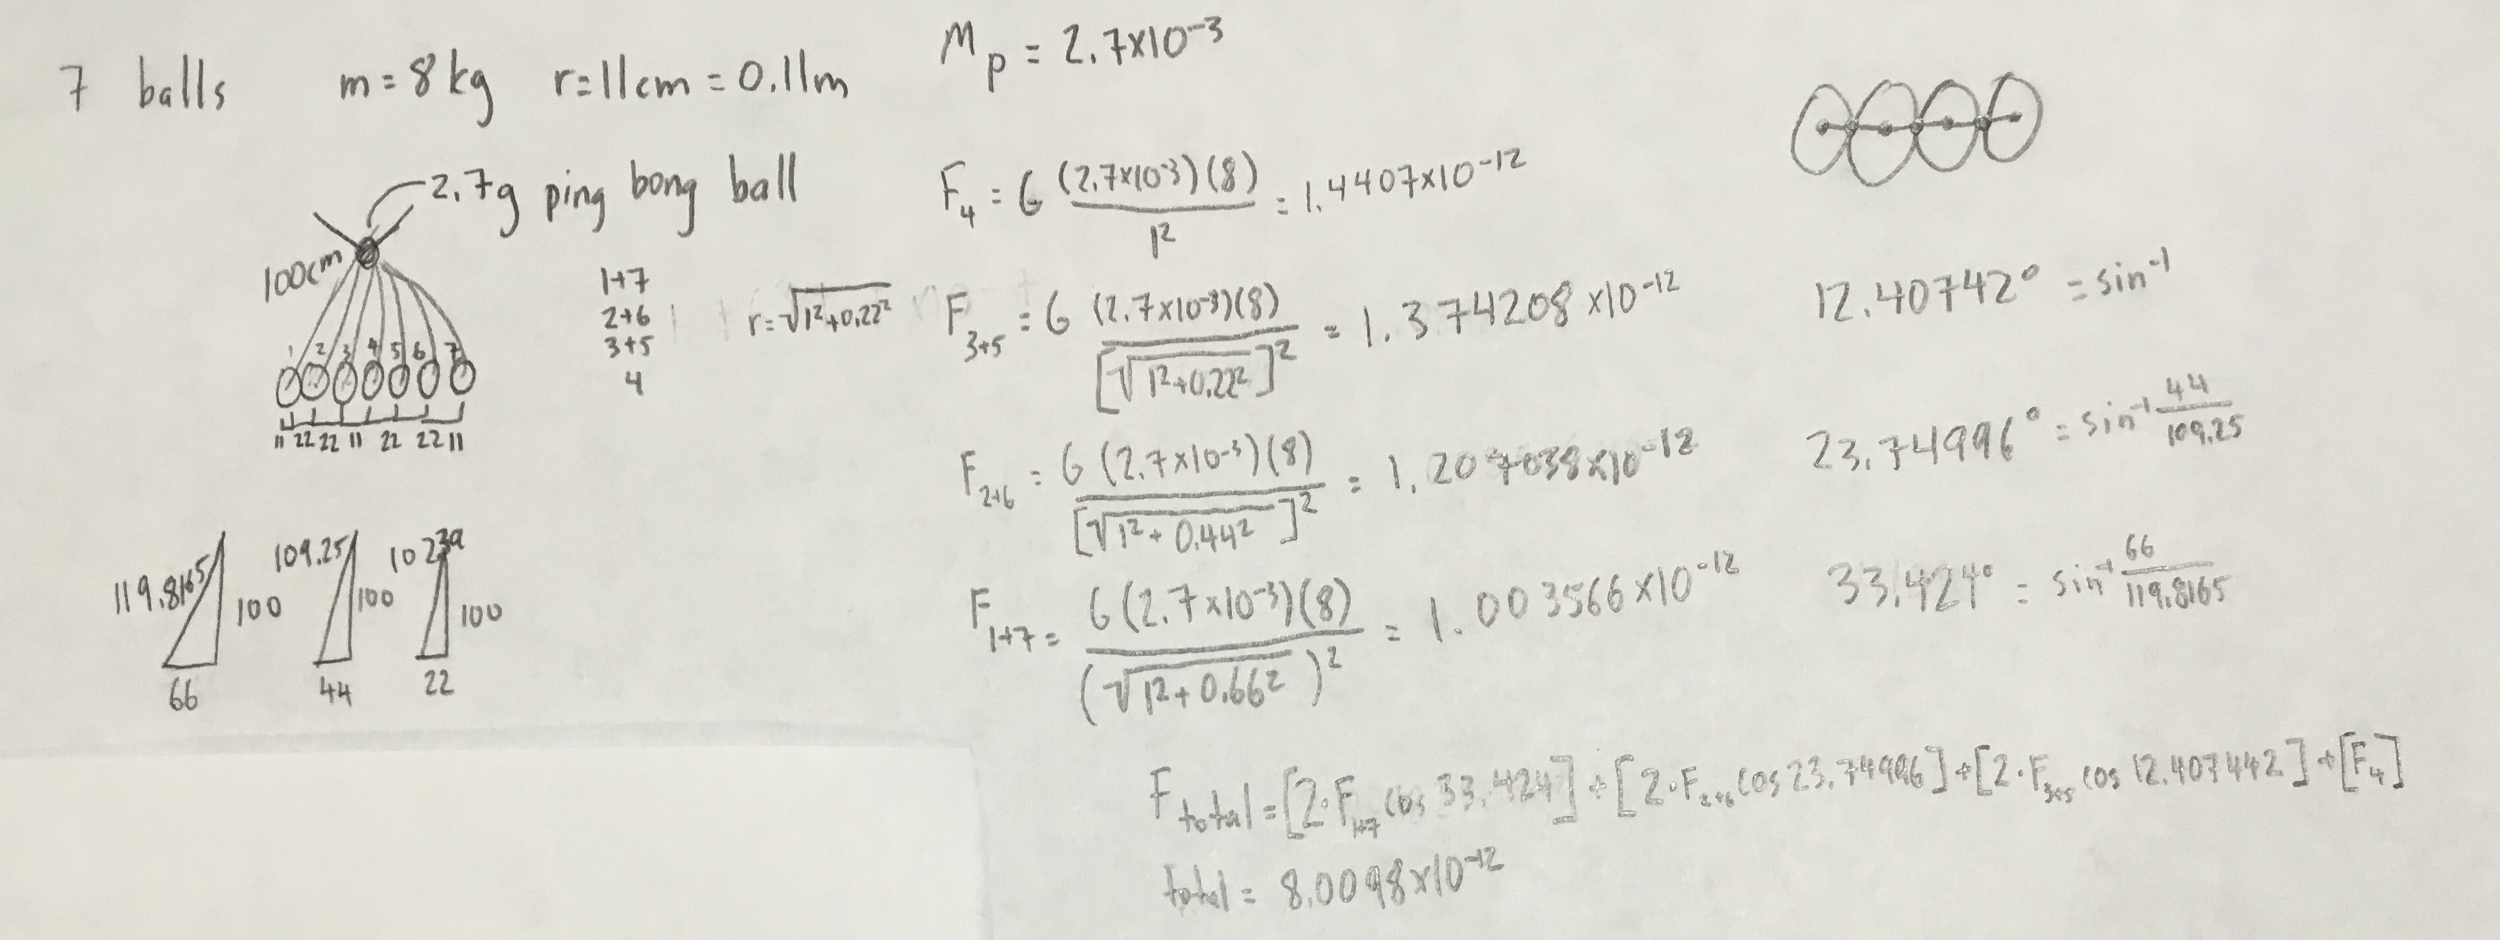 7 balls m=8kg r=11cm=0.11m
M_p = 2.7x10^-3
2.7g ping bong ball
100cm
1 2 3 4 5 6 7
11 22 22 11 22 22 11
1+7
2+6
3+5
4
r=√1²+0.22²
F_4 = G (2.7x10^-3)(8) / 1² = 1.4407x10^-12
F_3+5 = G (2.7x10^-3)(8) / [√1²+0.22²]² = 1.374208x10^-12
12.40742° = sin^-1
F_2+6 = G (2.7x10^-3)(8) / [√1²+0.44²]² = 1.207038x10^-12
23.74996° = sin^-1 44/109.25
F_1+7 = G (2.7x10^-3)(8) / (√1²+0.66²)² = 1.003566x10^-12
33.424° = sin^-1 66/119.8165
119.8165 100 66
109.25 100 44
102.39 100 22
F_total = [2·F_1+7 cos 33.424] + [2·F_2+6 cos 23.74996] + [2·F_3+5 cos 12.407442] + [F_4]
total = 8.0098x10^-12